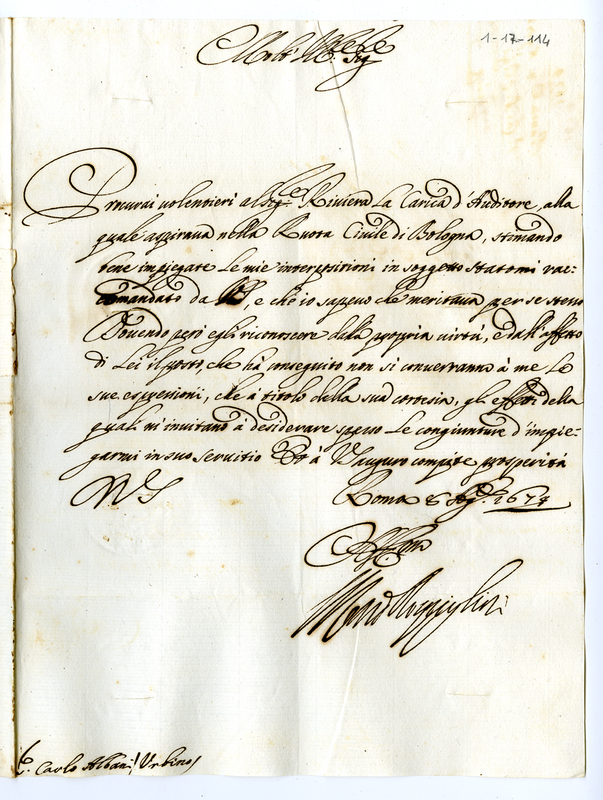 1-17-114
Molt' Ill.re Sig.re
Procurai volentieri al Sig.re Riviera la Carica d'Auditore, alla
quale aspirava nella Ruota Civile di Bologna, stimando
bene impiegate le mie interposizioni in soggetto statomi rac=
comandato da, e ch'io sapevo che meritava per se stesso
Dovendo però egli riconoscere dalla propria virtù, e dall'affetto
di Lei il posto, che hà conseguito non si converranno à me le
sue espressioni, che à titolo della sua cortesia, gli effetti della
quale m'invitano à desiderare spesso le congiunture d'impie=
garmi in suo servitio Et à V.S. auguro compite prosperità
Roma 8 1674
Aff.mo
Carlo Albani Urbino